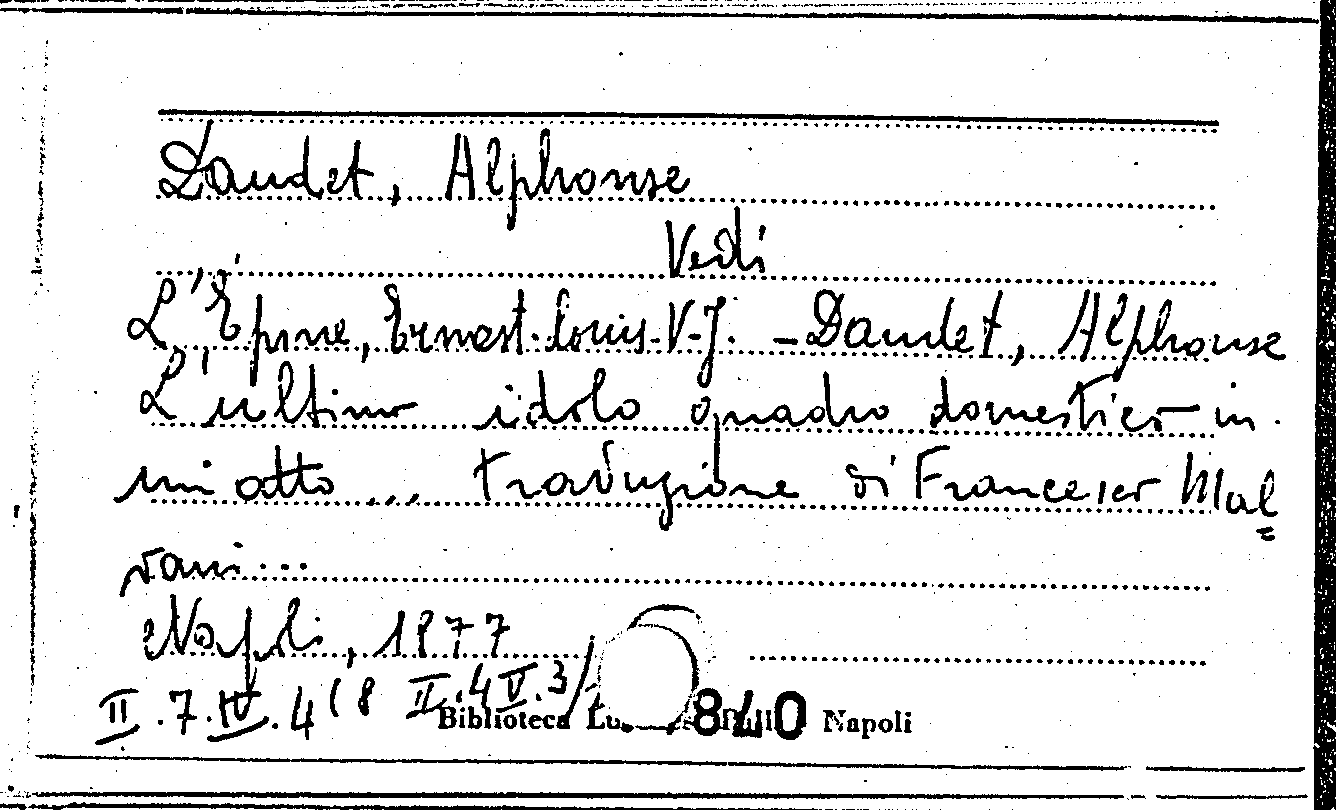 Daudet, Alphonse
Vedi
L'Épine, Ernest-Louis-V-J. - Daudet, Alphonse
L'ultimo idolo quadro domestico in
un atto ... traduzione di Francesco Mal=
vani...
Napoli, 1877
II.7.IV.4(8 II.4V.3/
Biblioteca 840 Napoli